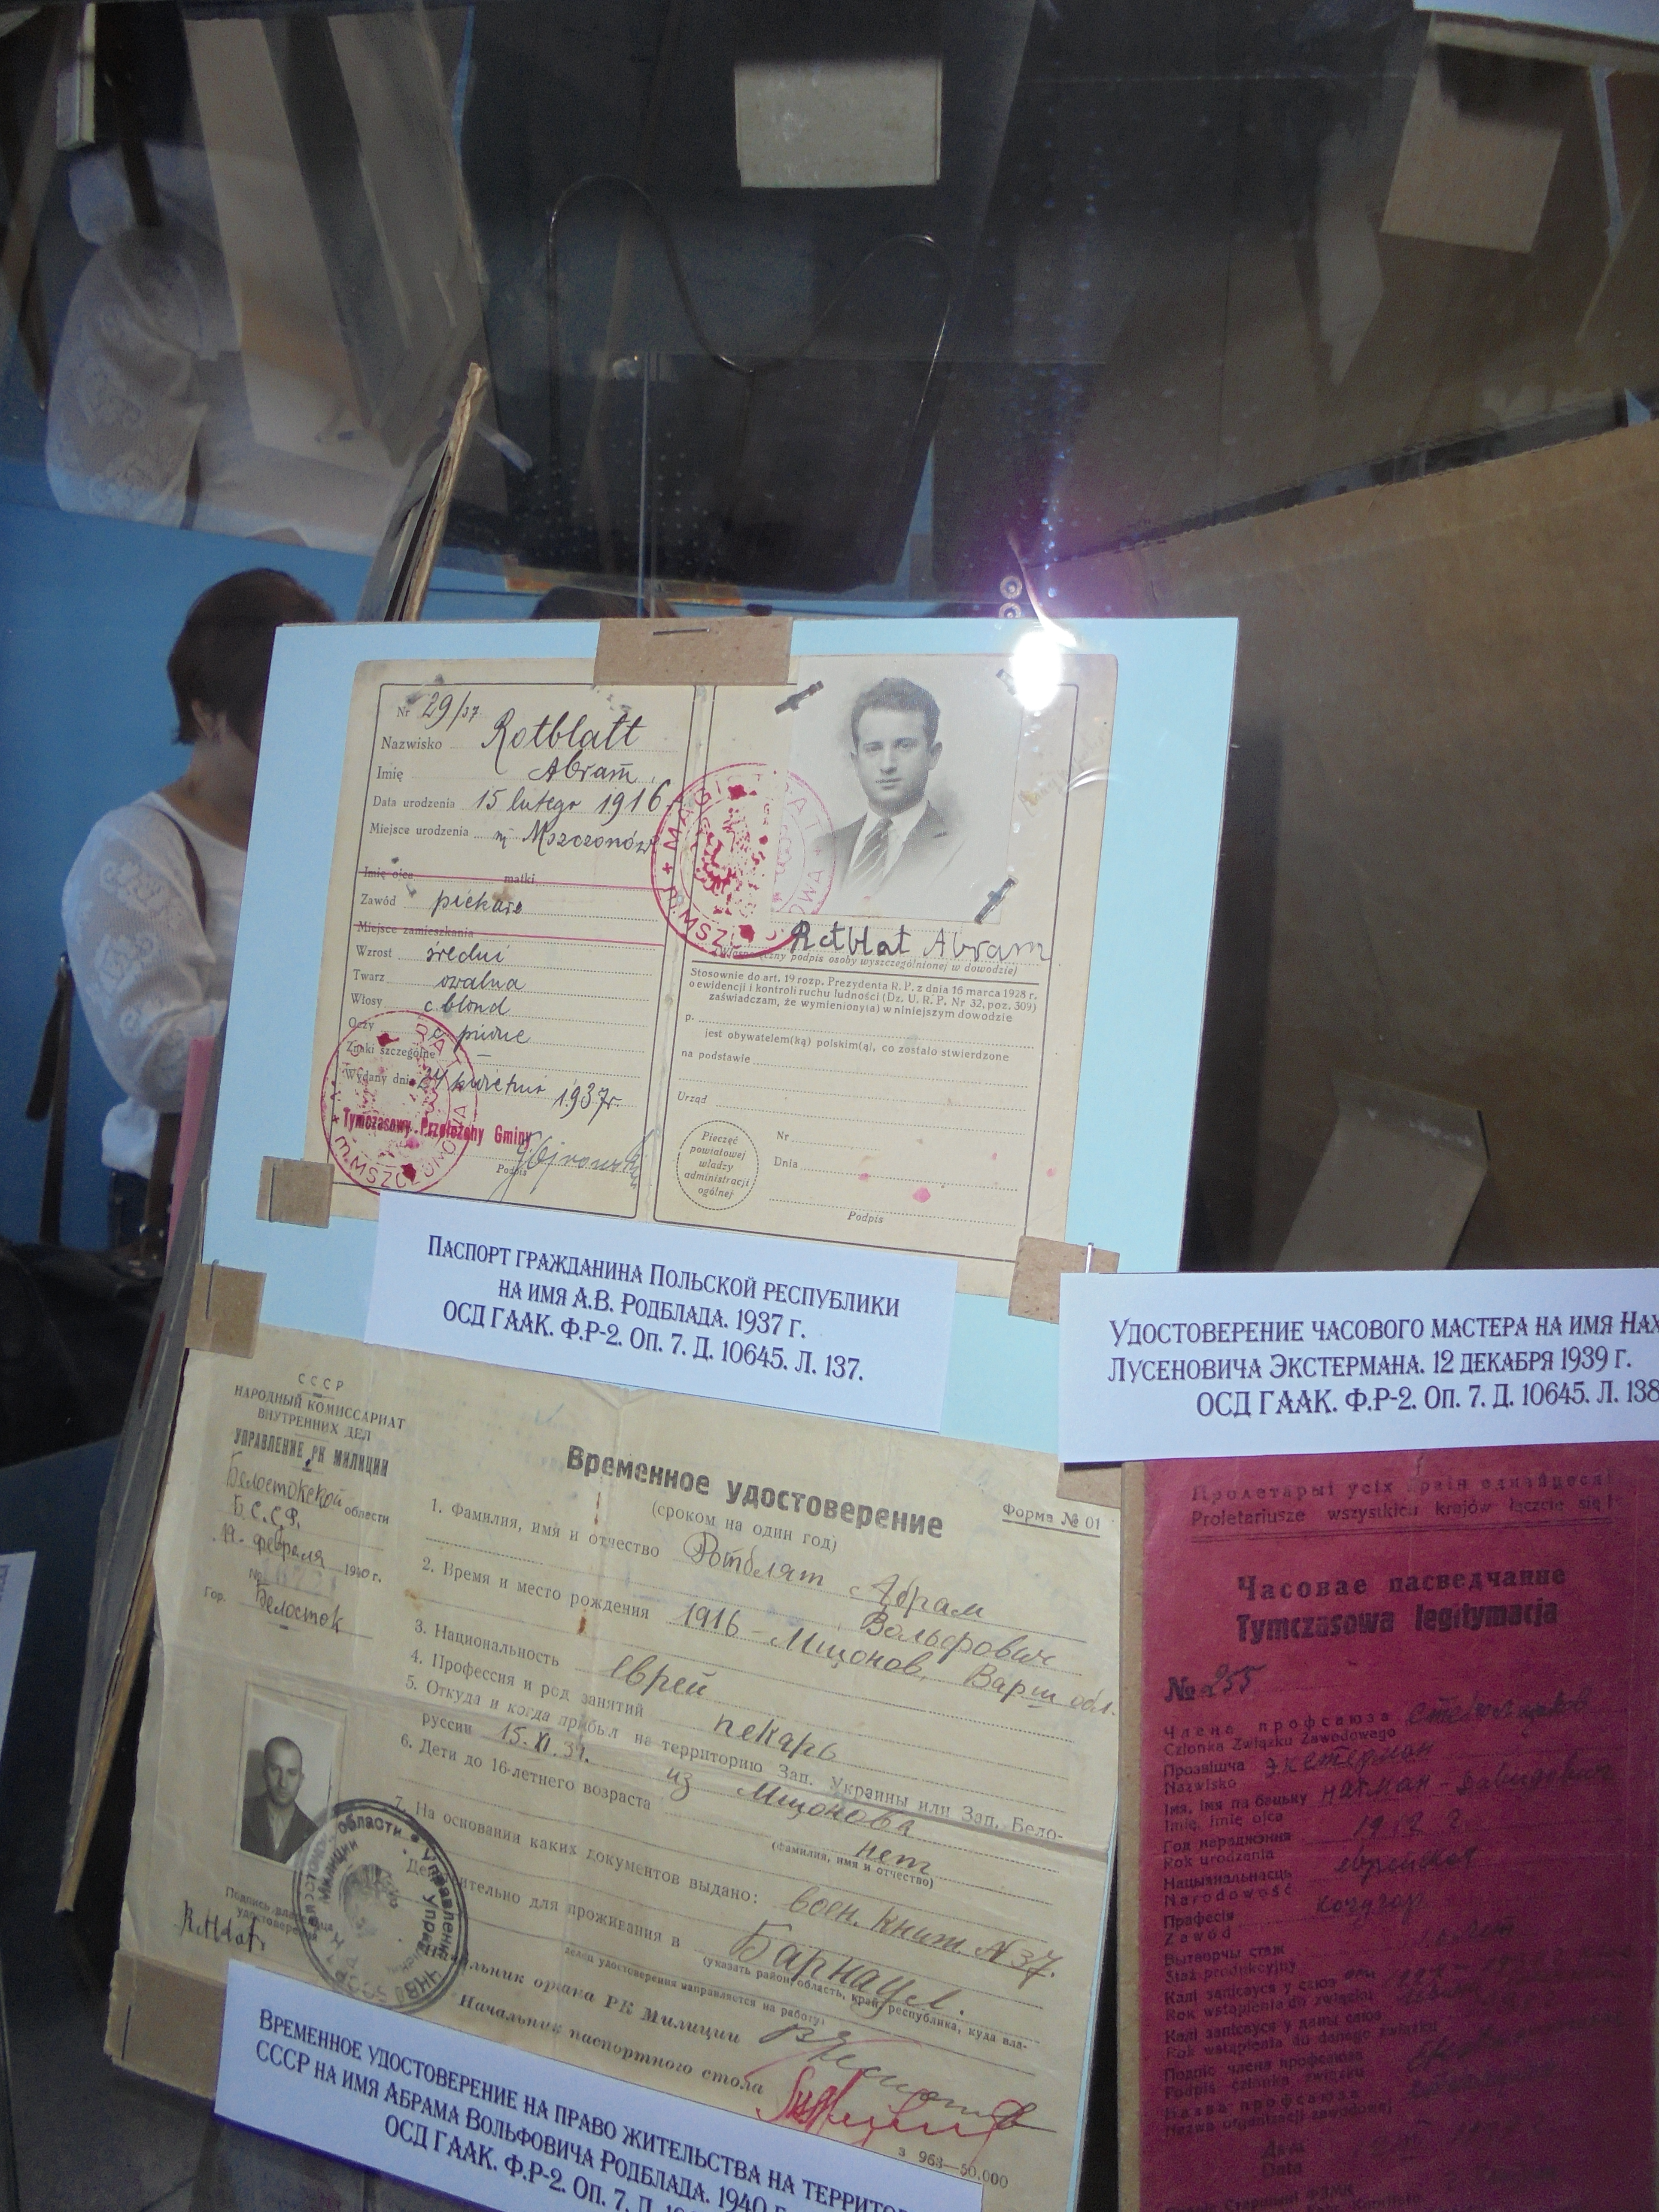 Nr 29/37
Nazwisko Rotblatt
Imię Abram
Data urodzenia 15 lutego 1916
Miejsce urodzenia m Mszczonów
Imię ojca matki
Zawód piekarz
Miejsce zamieszkania
Wzrost średni
Twarz owalna
Włosy c blond
Oczy c piwne
Znaki szczególne —
Wydany dnia 24 kwietnia 1937r.
Tymczasowy Przełożony Gminy
Podpis
MAGISTRAT
M. MSZCZONOWA
Rotblat Abram
(Własnoręczny podpis osoby wyszczególnionej w dowodzie)
Stosownie do art. 19 rozp. Prezydenta R. P. z dnia 16 marca 1928 r.
o ewidencji i kontroli ruchu ludności (Dz. U. R. P. Nr 32, poz. 309)
zaświadczam, że wymieniony(a) w niniejszym dowodzie
p.
jest obywatelem(ką) polskim(ą), co zostało stwierdzone
na podstawie
Urząd
Pieczęć
powiatowej
władzy
administracji
ogólnej
Nr
Dnia
Podpis
Паспорт гражданина Польской республики
на имя А.В. Родблада. 1937 г.
ОСД ГААК. Ф.Р-2. Оп. 7. Д. 10645. Л. 137.
Удостоверение часового мастера на имя Нах
Лусеновича Экстермана. 12 декабря 1939 г.
ОСД ГААК. Ф.Р-2. Оп. 7. Д. 10645. Л. 138
СССР
НАРОДНЫЙ КОМИССАРИАТ
ВНУТРЕННИХ ДЕЛ
УПРАВЛЕНИЕ РК МИЛИЦИИ
Белостокской области
Б.С.С.Р.
февраля 1940 г.
№
Гор. Белосток
Временное удостоверение
(сроком на один год)
Форма № 01
1. Фамилия, имя и отчество Ротблят Абрам
Вольфович
2. Время и место рождения 1916 – Мщонов, Варш обл.
3. Национальность еврей
4. Профессия и род занятий пекарь
5. Откуда и когда прибыл на территорию Зап. Украины или Зап. Бело-
руссии 15.XI.39. из Мщонова
6. Дети до 16-летнего возраста нет
(фамилия, имя и отчество)
7. На основании каких документов выдано: воен. книж N 37.
Действительно для проживания в Барнаул.
(указать район, область, край, республика, куда вла-
делец удостоверения направляется на работу)
Начальник органа РК Милиции
Начальник паспортного стола
Подпись владельца
удостоверения
з 963—50.000
Временное удостоверение на право жительства на территор
СССР на имя Абрама Вольфовича Родблада. 1940 г.
ОСД ГААК. Ф.Р-2. Оп. 7. Д.
Пролетарыі усіх краін еднайцеся!
Proletariusze wszystkich krajów łączcie się!
Часовае пасведчанне
Tymczasowa legitymacja
№ 255
Члена профсаюза
Członka Związku Zawodowego
Прозвішча Экстерман
Nazwisko
Імя, імя па бацьку Нахман - Давидович
Imię, imię ojca
Год нараджэння 1912 г.
Rok urodzenia
Нацыянальнасць еврейская
Narodowość
Прафесія
Zawód
Вытворчы стаж
Staż produkcyjny
Калі запісауся у саюз
Rok wstąpienia do związku
Калі запісауся у даны саюз
Rok wstąpienia do danego związku
Подпіс члена профсаюза
Podpis członka związku
Назва профсаюза
Nazwa organizacji zawodowej
Дата
Data